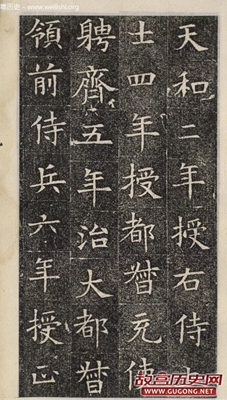 天和二年授右侍上
士四年授都督充使
聘齊五年治大都督
領前侍兵六年授正
故宫历史网